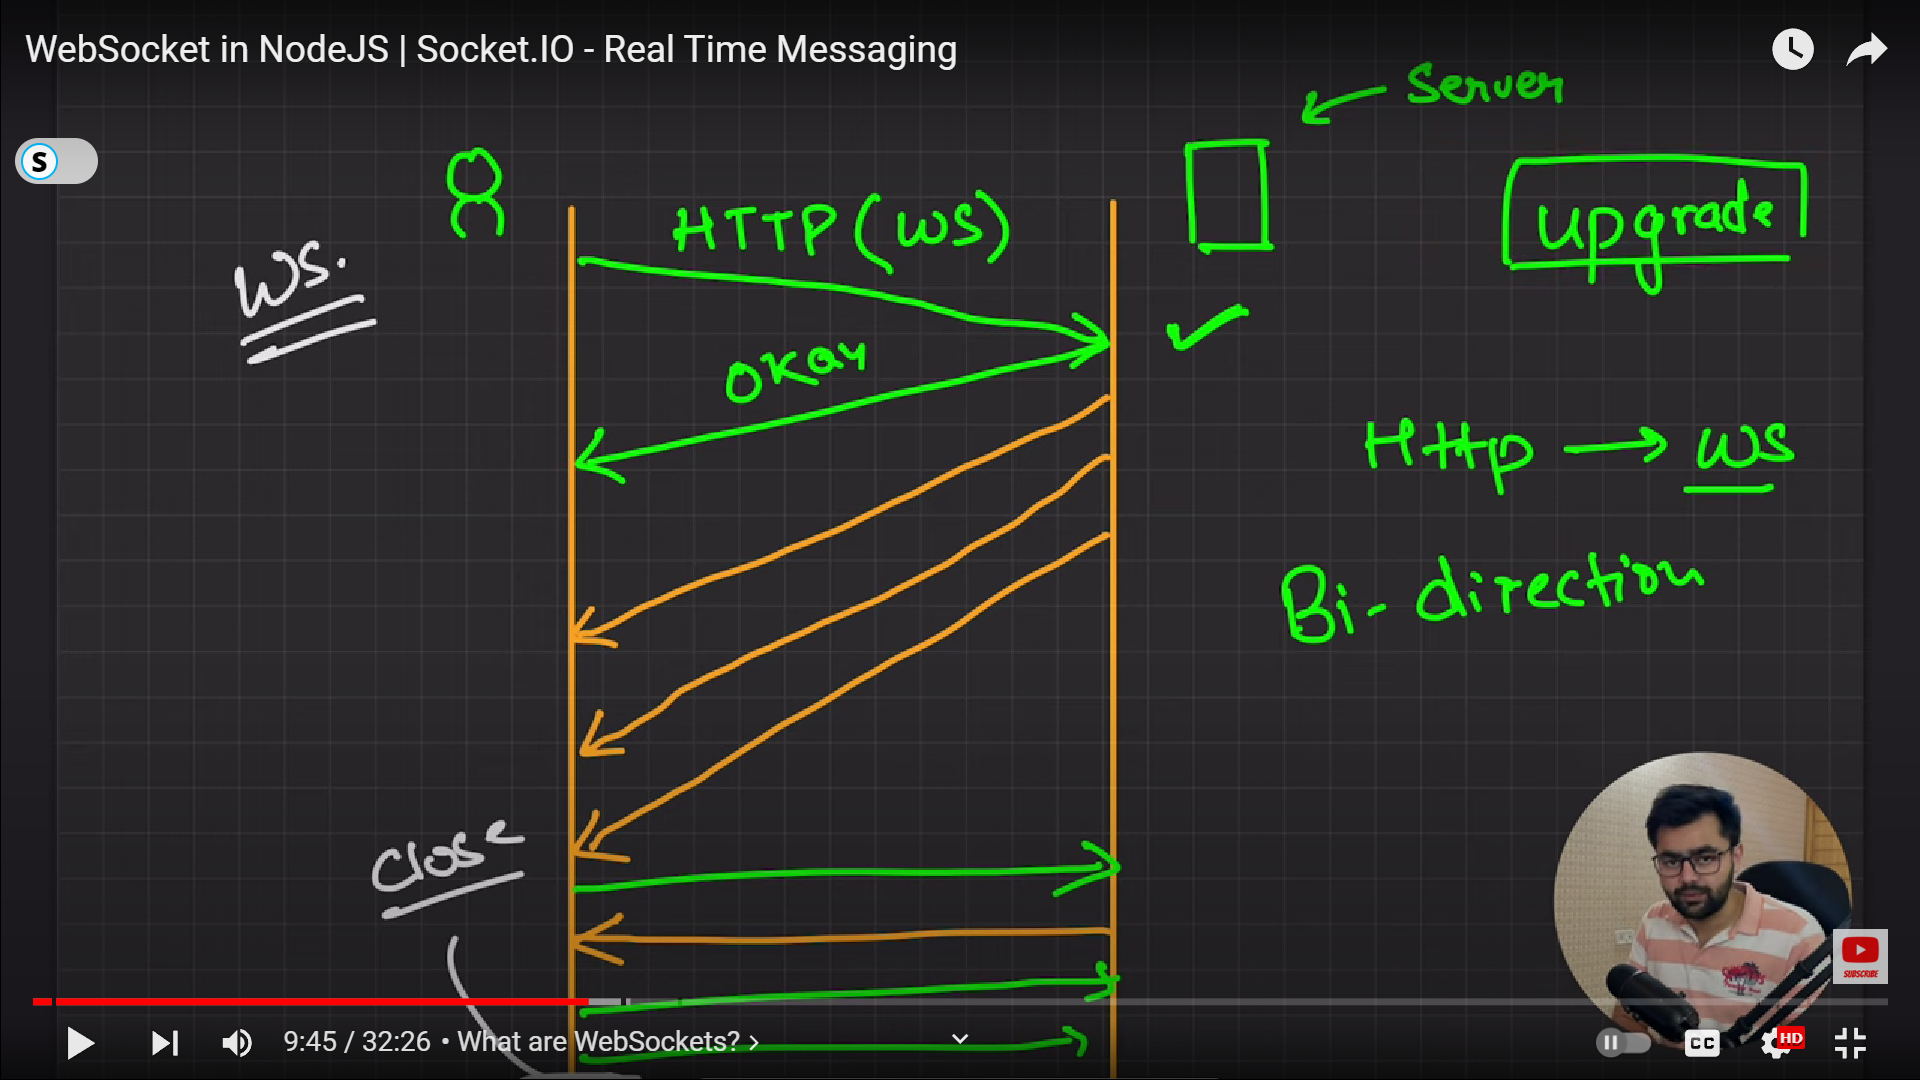 WebSocket in NodeJS | Socket.IO - Real Time Messaging
Server
S
HTTP (WS)
upgrade
WS.
OKAY
Http → WS
Bi-direction
Close
SUBSCRIBE
9:45 / 32:26 • What are WebSockets? >
CC
HD